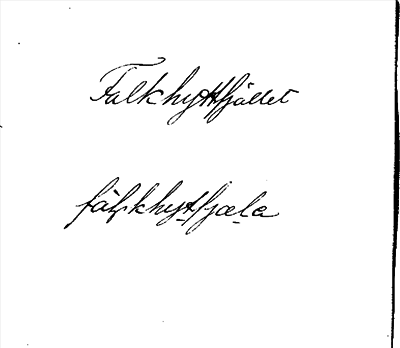 Falkhyttfjället
fàḷkhyt̠fjæl̠a